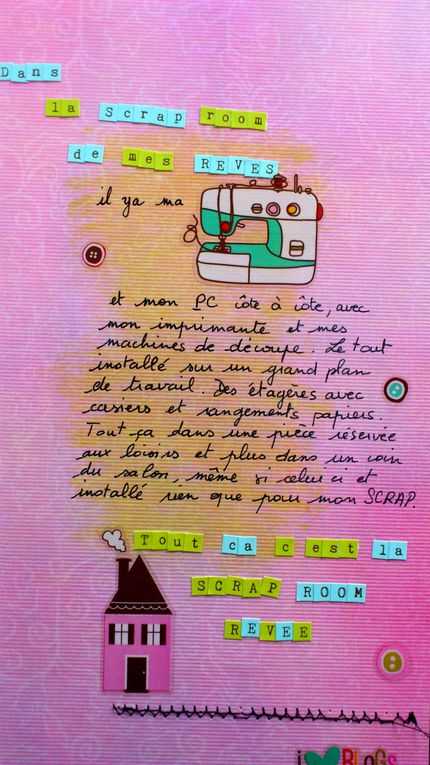 Dans
la Scrap room
de mes REVES
il y a ma
et mon PC côte à côte, avec
mon imprimante et mes
machines de découpe. Le tout
installé sur un grand plan
de travail. Des étagères avec
casiers et rangements papiers.
Tout ça dans une pièce réservée
aux loisirs et plus dans un coin
du salon, même si celui ci et
installé rien que pour mon SCRAP.
Tout ca c est la
SCRAP ROOM
REVEE
i BLOGS